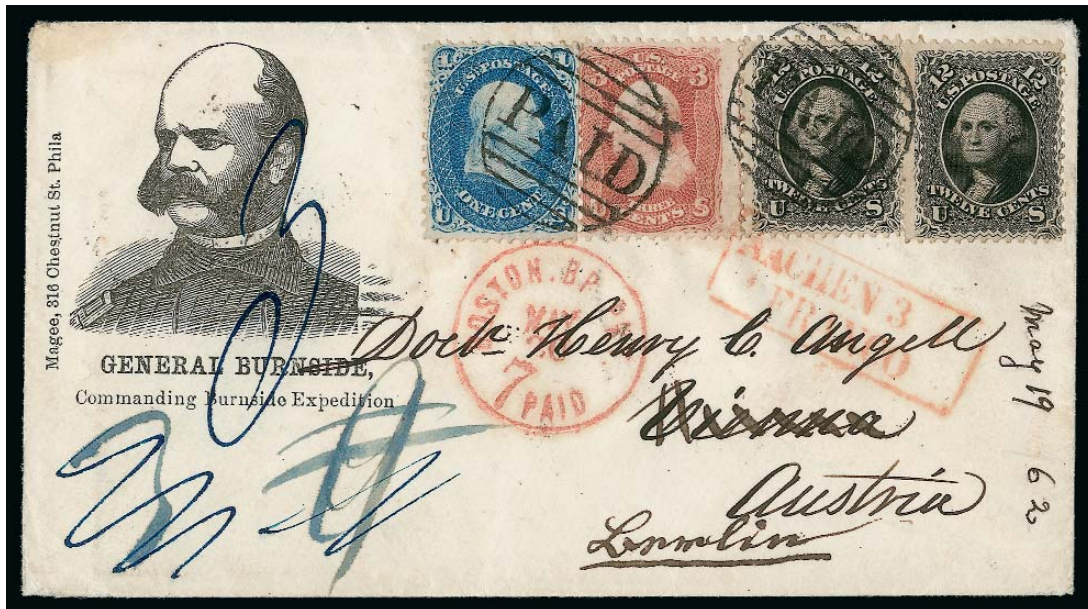 Magee, 316 Chestnut St. Phila
GENERAL BURNSIDE,
Commanding Burnside Expedition
1 1
U.S. POSTAGE
ONE CENT
U S
U.S. 3
POSTAGE
THREE
CENTS S
PAID
12 12
U.S. POSTAGE
TWELVE CENTS
U S
12 12
U.S. POSTAGE
TWELVE CENTS
U S
BOSTON. BR. PK.
MAY
7
PAID
AACHEN 3
FRANCO
Doctr Henry C. Angell
Vienna
Austria
Berlin
May 19 62